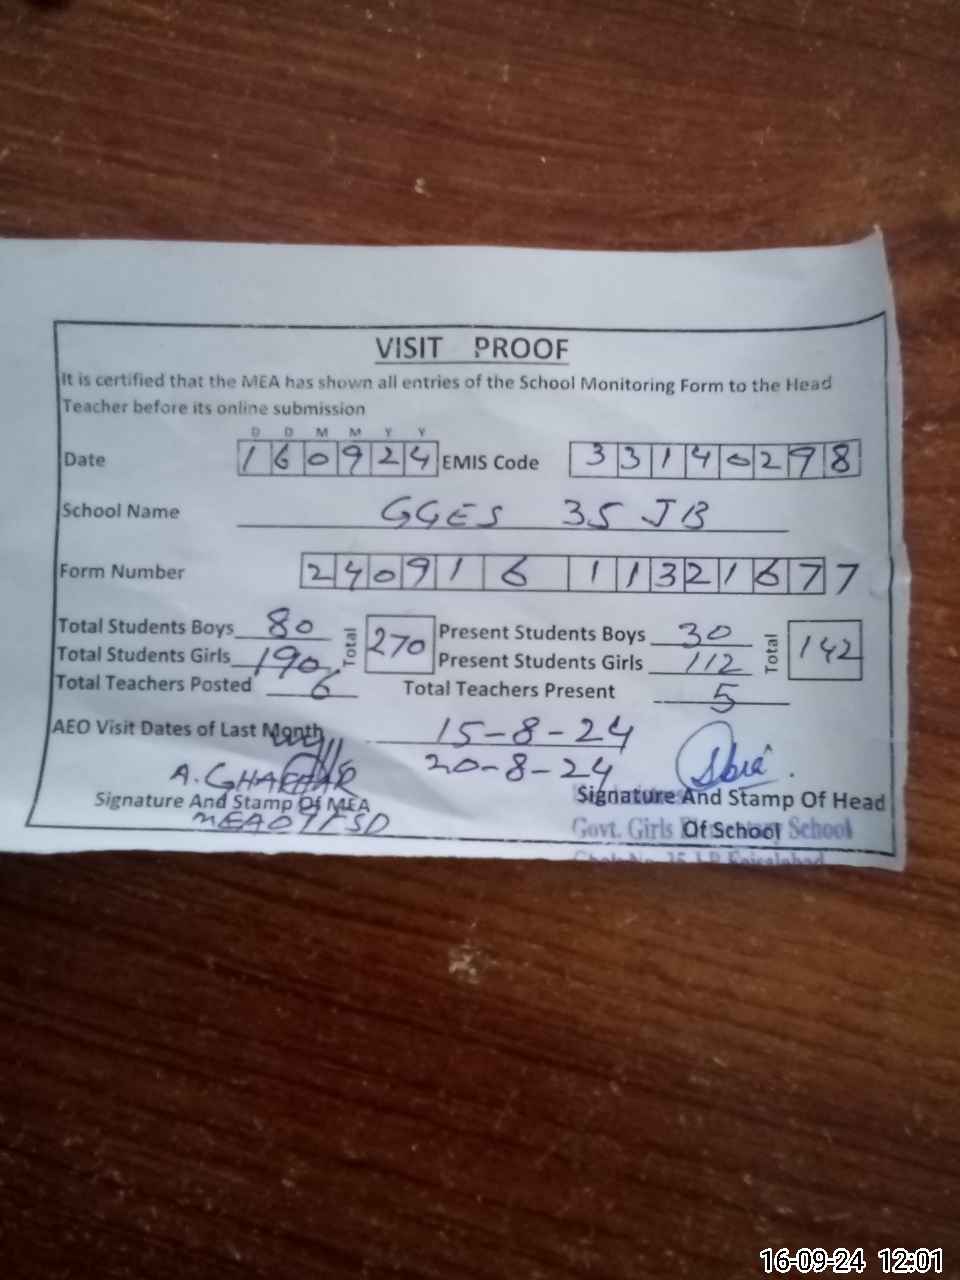 VISIT PROOF
It is certified that the MEA has shown all entries of the School Monitoring Form to the Head
Teacher before its online submission
D D M M Y Y
Date 160924 EMIS Code 33140298
School Name GGES 35 JB
Form Number 240916 11321677
Total Students Boys 80 Total 270 Present Students Boys 30 Total 142
Total Students Girls 190 Present Students Girls 112
Total Teachers Posted 6 Total Teachers Present 5
AEO Visit Dates of Last Month 15-8-24
20-8-24
A. GHAFHAR
Signature And Stamp Of MEA Signature And Stamp Of Head
MEA09FSD Govt. Girls Elementary School
Of School
35 J.B Faisalabad
16-09-24 12:01